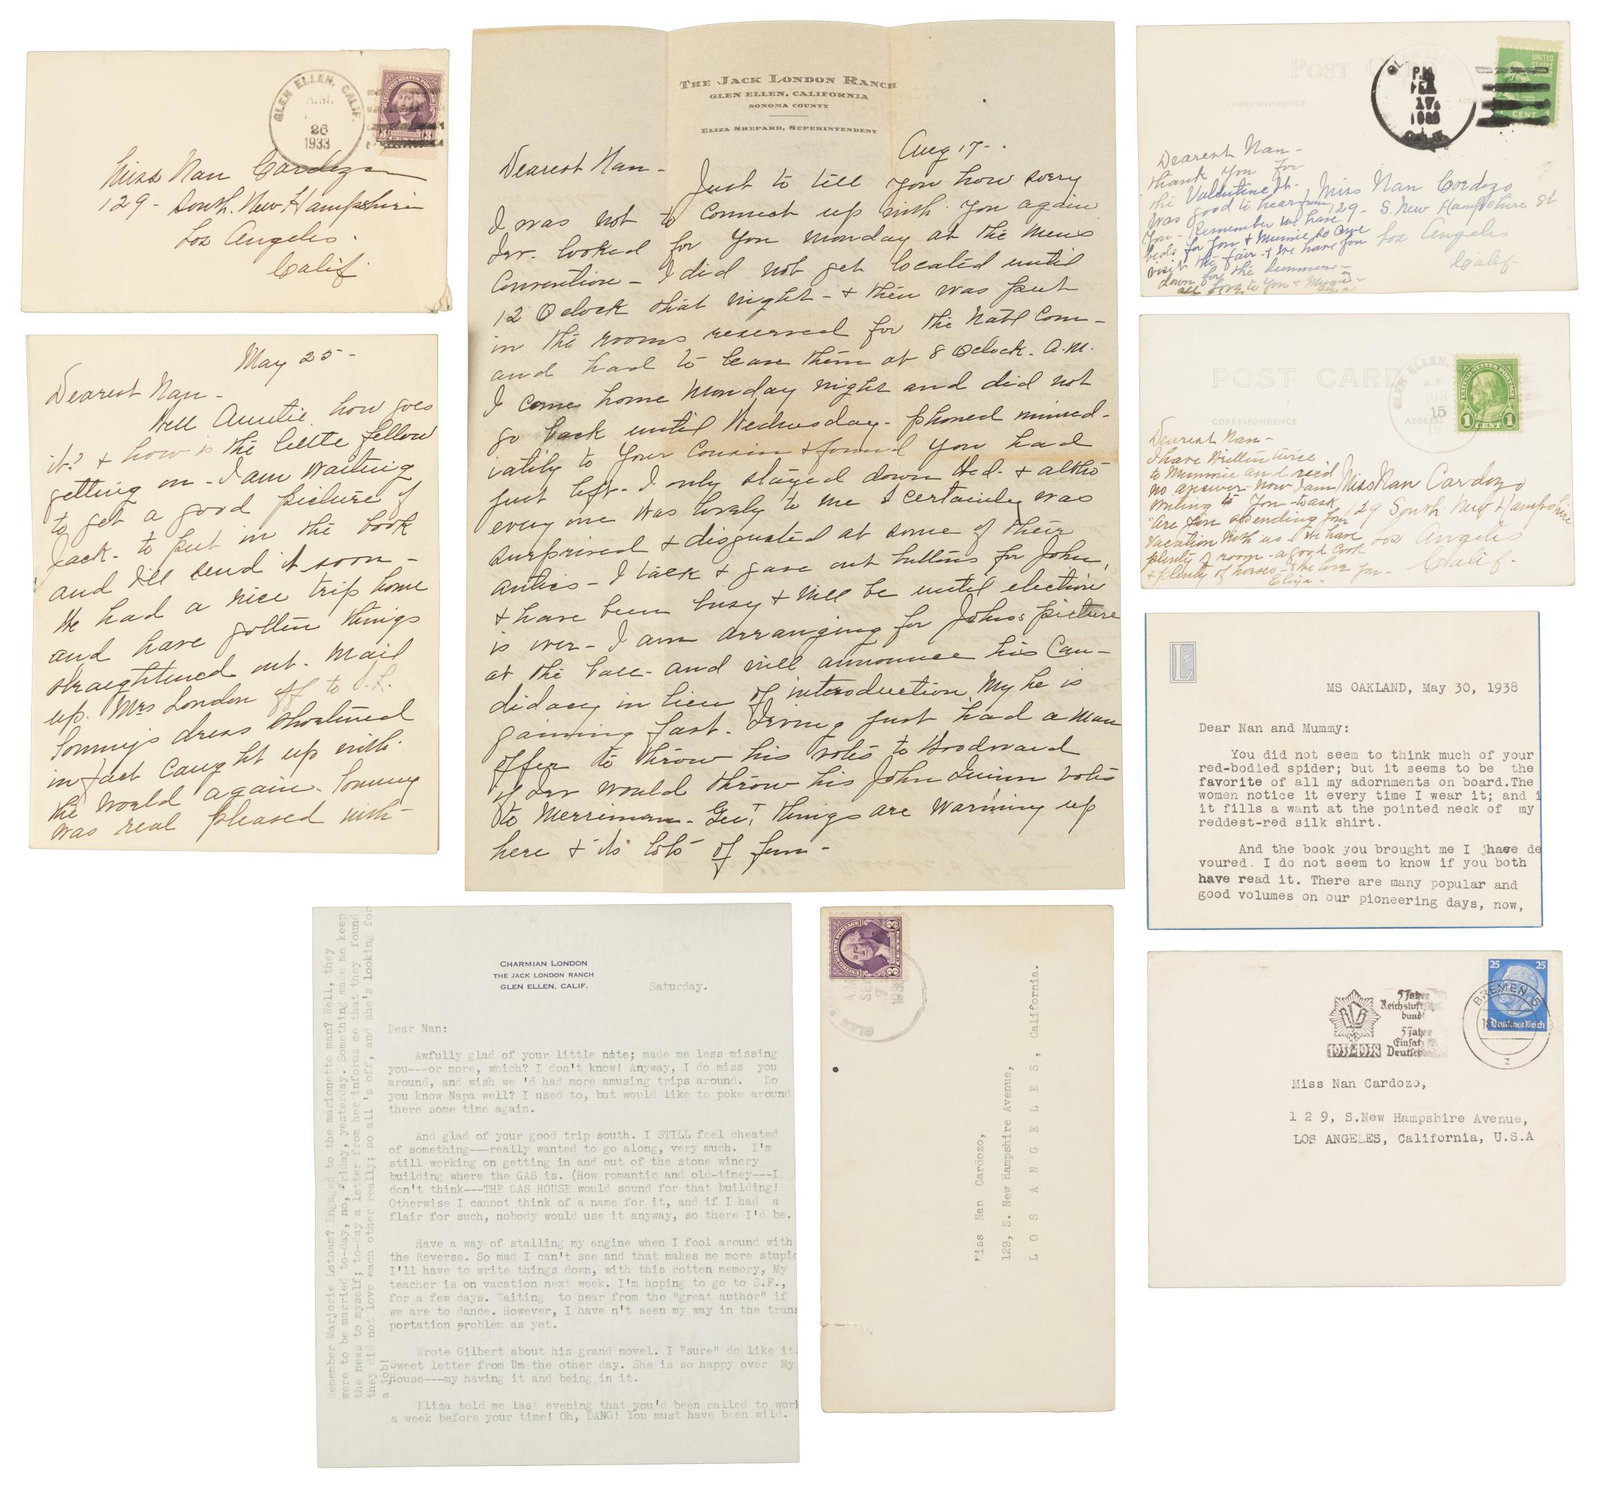 GLEN ELLEN, CALIF.
A.M.
26
1933
Miss Nan Cardoza
129 - South New Hampshire
Los Angeles.
Calif.
May 25 -
Dearest Nan -
Well Auntie how goes
it? & how is the little fellow
getting on - I am waiting
to get a good picture of
Jack - to put in the book
and I'll send it soon -
We had a nice trip home
and have gotten things
straightened out. Mail
up. Mrs London off to
Sonny's dress shortened
in fact caught up with
the world again. Sonny
was real pleased with
THE JACK LONDON RANCH
GLEN ELLEN, CALIFORNIA
SONOMA COUNTY
ELIZA SHEPARD, SUPERINTENDENT
Aug 17 -
Dearest Nan -
Just to tell you how sorry
I was not to connect up with you again
Irv. looked for you Monday at the
Convention - I did not get located until
12 Oclock that night - & then was put
in the rooms reserved for the Natl Com -
and had to leave them at 8 Oclock. A.M.
I come home Monday night and did not
go back until Wednesday - phoned immed-
iately to your Cousin & found you had
just left. I only stayed down Wed. & altho
every one was lovely to me I certainly was
surprised & disgusted at some of their
antics - I talk & gave out buttons for John,
& have been busy & will be until election
is over - I am arranging for Johns picture
at the - and will announce his Can-
didacy in lieu of introduction. My he is
gaining fast. Irving just had a man
offer to throw his votes to Woodward
if Irv would throw his John Quinn votes
to Merriman - Gee! things are warming up
here & its lots of fun -
POST CARD
CORRESPONDENCE
P.M.
FEB
17
CALIF.
UNITED STATES
1 CENT
Dearest Nan -
thank you for
the Valentine It -
was good to hear from
you - Remember we have
beds for you & Mummie to come
visit the fair - & we have you
down for the Summer -
all love to you & Mummie -
Eliza
Miss Nan Cordozo
129 - S. New Hampshire St
Los Angeles
Calif -
POST CARD
CORRESPONDENCE
ADDRESS
GLEN ELLEN,
15
1 CENT 1
Dearest Nan -
I have written twice
to Mummie and rec'd
no answer - Now I am
writing to you - to ask
Are you spending your
vacation with us - We have
plenty of room - a good cook
& plenty of horses - &
Eliza -
Miss Nan Cardozo
129 South New Hampshire
Los Angeles
Calif -
MS OAKLAND, May 30, 1938
Dear Nan and Mummy:
You did not seem to think much of your
red-bodied spider; but it seems to be the
favorite of all my adornments on board.The
women notice it every time I wear it; and i
it fills a want at the pointed neck of my
reddest-red silk shirt.
And the book you brought me I have de
voured. I do not seem to know if you both
have read it. There are many popular and
good volumes on our pioneering days, now,
CHARMIAN LONDON
THE JACK LONDON RANCH
GLEN ELLEN, CALIF.
Saturday.
Dear Nan:
Awfully glad of your little note; made me less missing
you---or more, which? I don't know! Anyway, I do miss you
around, and wish we 'd had more amusing trips around. Do
you know Napa well? I used to, but would like to poke around
there some time again.
And glad of your good trip south. I STILL feel cheated
of something---really wanted to go along, very much. I'm
still working on getting in and out of the stone winery
building where the GAS is. (How romantic and old-timey---I
don't think---THE GAS HOUSE would sound for that building!
Otherwise I cannot think of a name for it, and if I had a
flair for such, nobody would use it anyway, so there I'd be.
Have a way of stalling my engine when I fool around with
the Reverse. So mad I can't see and that makes me more stupid
I'll have to write things down, with this rotten memory, My
teacher is on vacation next week. I'm hoping to go to S.F.,
for a few days. Waiting to hear from the "great author" if
we are to dance. However, I have n't seen my way in the trans
portation problem as yet.
Wrote Gilbert about his grand novel. I "sure" do like it.
Sweet letter from Um the other day. She is so happy over My
House---my having it and being in it.
Eliza told me last evening that you'd been called to work
a week before your time! Oh, DANG! You must have been wild.
Remember Marjorie Latham? Engaged to the marionette man? Well, they
were to be married to-day, no, Friday, yesterday. Something made me keep
the news to myself; to-day a letter from her informs me that they found
they did not love each other really; so all 's off, and she's looking for
a job!
3 3
A.M.
SEP
7
Miss Nan Cardozo,
129, S. New Hampshire Avenue,
LOS ANGELES, California.
BREMEN 5
25 25
Deutsches Reich
RLB
1933-1938
5 Jahre
Reichsluft
bund
5 Jahre
Einsatz
z
Miss Nan Cardozo,
1 2 9, S.New Hampshire Avenue,
LOS ANGELES, California, U.S.A